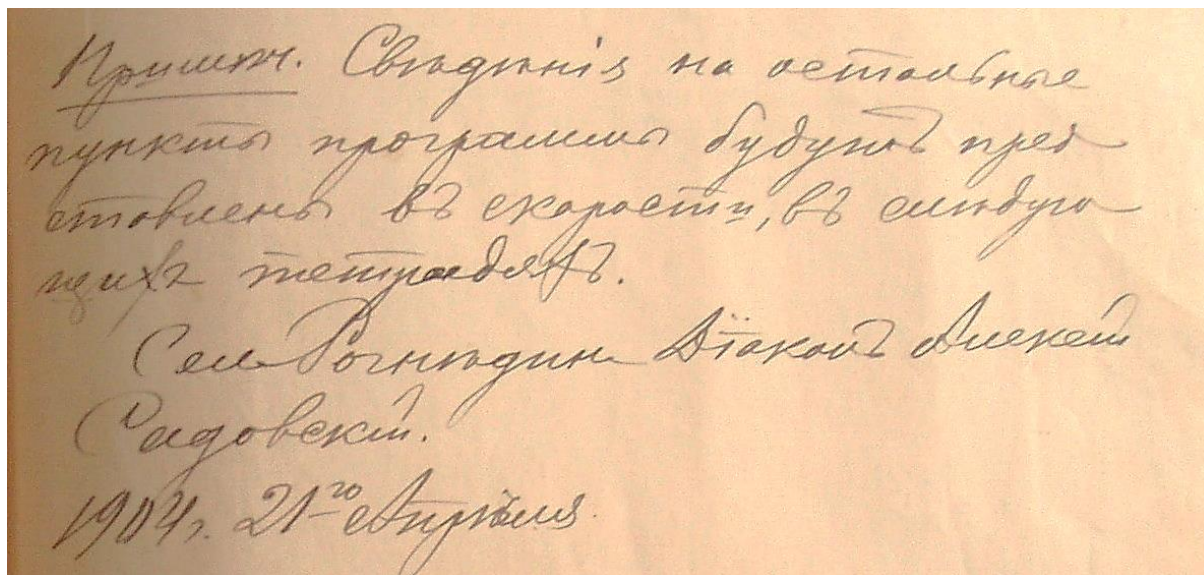 Примѣч. Свѣдѣнія на остальные
пункты программы будутъ пред
ставлены въ скорости, въ слѣдую
щихъ тетрадяхъ.
Села Рогнѣдина Діаконъ Алексѣй
Садовскій.
1904 г. 21го Апрѣля.